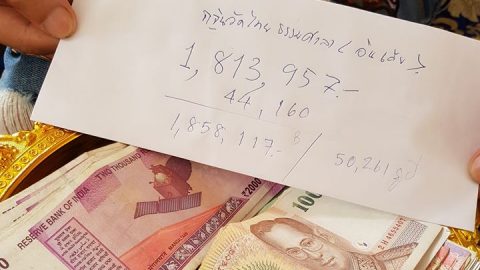 กฐินวัดไทย ธรรมศาลา (อินเดีย)
1,813,957.-
44,160
1,858,117.- B / 50,261 รูปี
RESERVE BANK OF INDIA
TWO THOUSAND
₹2000
100